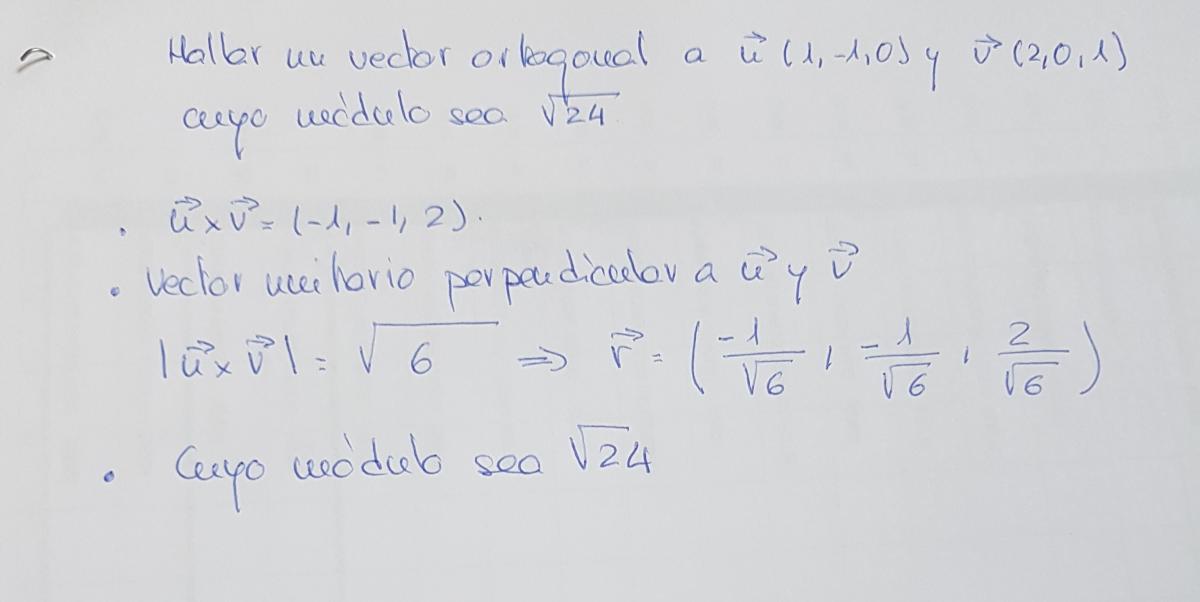 Hallar un vector ortogonal a u⃗ (1,-1,0) y v⃗ (2,0,1)
cuyo módulo sea √24
. u⃗ x v⃗ = (-1, -1, 2).
. Vector unitario perpendicular a u⃗ y v⃗
|u⃗ x v⃗| = √6 => r⃗ = (-1/√6, -1/√6, 2/√6)
. Cuyo módulo sea √24